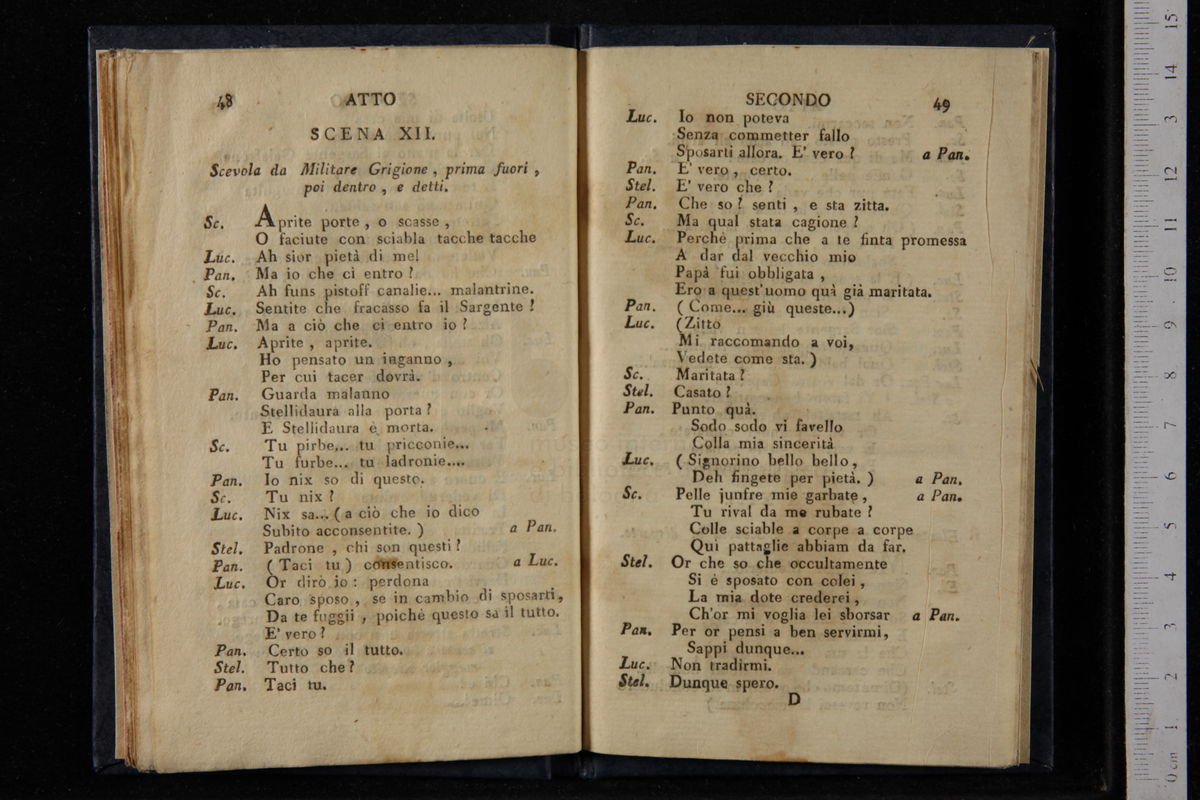 48 ATTO
SCENA XII.
Scevola da Militare Grigione , prima fuori ,
poi dentro , e detti.
Sc. Aprite porte , o scasse ,
O faciute con sciabla tacche tacche
Luc. Ah sior pietà di me!
Pan. Ma io che ci entro ?
Sc. Ah funs pistoff canalie... malantrine.
Luc. Sentite che fracasso fa il Sargente !
Pan. Ma a ciò che ci entro io ?
Luc. Aprite , aprite.
Ho pensato un inganno ,
Per cui tacer dovrà.
Pan. Guarda malanno
Stellidaura alla porta ?
E Stellidaura è morta.
Sc. Tu pirbe... tu pricconie...
Tu furbe... tu ladronie....
Pan. Io nix so di questo.
Sc. Tu nix ?
Luc. Nix sa... ( a ciò che io dico
Subito acconsentite. ) a Pan.
Stel. Padrone , chi son questi ?
Pan. ( Taci tu ) consentisco. a Luc.
Luc. Or dirò io : perdona
Caro sposo , se in cambio di sposarti,
Da te fuggii , poichè questo sa il tutto.
E' vero ?
Pan. Certo so il tutto.
Stel. Tutto che ?
Pan. Taci tu.
SECONDO 49
Luc. Io non poteva
Senza commetter fallo
Sposarti allora. E' vero ? a Pan.
Pan. E' vero , certo.
Stel. E' vero che ?
Pan. Che so ? senti , e sta zitta.
Sc. Ma qual stata cagione ?
Luc. Perchè prima che a te finta promessa
A dar dal vecchio mio
Papà fui obbligata ,
Ero a quest'uomo quà già maritata.
Pan. ( Come... giù queste...)
Luc. (Zitto
Mi raccomando a voi,
Vedete come sta. )
Sc. Maritata ?
Stel. Casato ?
Pan. Punto quà.
Sodo sodo vi favello
Colla mia sincerità
Luc. ( Signorino bello bello ,
Deh fingete per pietà. ) a Pan.
Sc. Pelle junfre mie garbate , a Pan.
Tu rival da me rubate ?
Colle sciable a corpe a corpe
Qui pattaglie abbiam da far.
Stel. Or che so che occultamente
Si è sposato con colei ,
La mia dote crederei ,
Ch'or mi voglia lei sborsar a Pan.
Pan. Per or pensi a ben servirmi,
Sappi dunque...
Luc. Non tradirmi.
Stel. Dunque spero.
D
0 cm 1 2 3 4 5 6 7 8 9 10 11 12 13 14 15